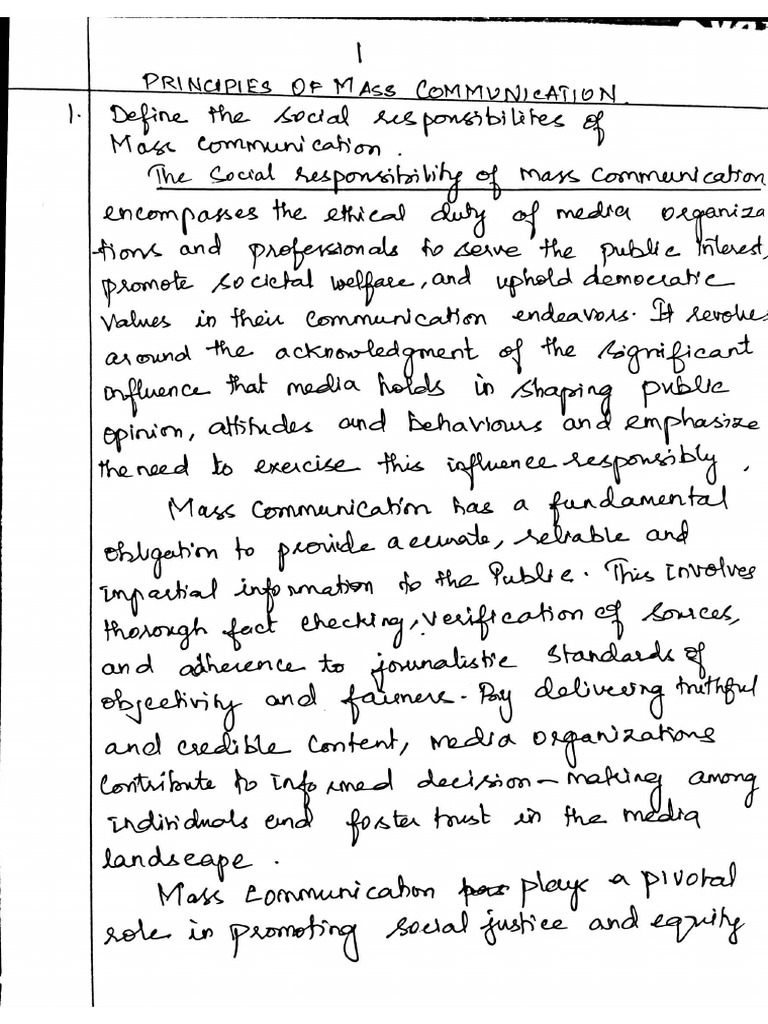 1
PRINCIPIES OF MASS COMMUNICATION.
1. Define the social responsibilites of
Mass communication.
The Social responsibility of mass communication
encompasses the ethical duty of media organiza
tions and professionals to serve the public interest,
promote societal welfare, and uphold democratic
values in their communication endeavors. It revolves
around the acknowledgment of the significant
influence that media holds in shaping public
opinion, attitudes and behaviours and emphasize
the need to exercise this influence responsibly.
Mass Communication has a fundamental
obligation to provide accurate, reliable and
impartial information to the Public. This involves
thorough fact checking, verification of sources,
and adherence to journalistic standards of
objectivity and fairness. By delivering truthful
and credible content, media organizations
contribute to informed decision-making among
individuals and foster trust in the media
landscape.
Mass Communication plays a pivotal
role in promoting social justice and equity